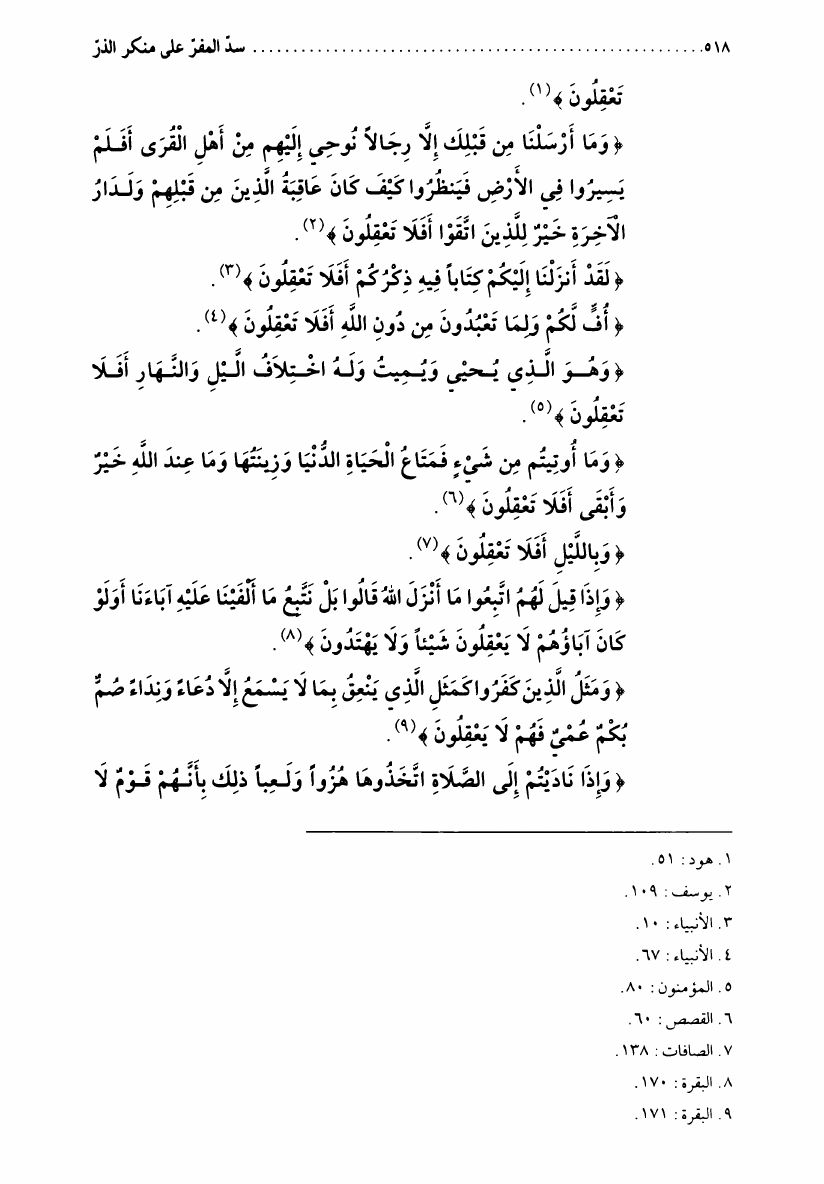 ٥١٨ ........................................................ سدّ المفرّ على منكر الذرّ
تَعْقِلُونَ ﴾(١).
﴿ وَمَا أَرْسَلْنَا مِن قَبْلِكَ إِلَّا رِجَالاً نُوحِي إِلَيْهِم مِنْ أَهْلِ الْقُرَى أَفَـلَمْ
يَسِيرُوا فِي الأَرْضِ فَيَنظُرُوا كَيْفَ كَانَ عَاقِبَةُ الَّذِينَ مِن قَبْلِهِمْ وَلَـدَارُ
الْآخِرَةِ خَيْرٌ لِلَّذِينَ اتَّقَوْا أَفَلَا تَعْقِلُونَ ﴾(٢).
﴿ لَقَدْ أَنزَلْنَا إِلَيْكُمْ كِتَاباً فِيهِ ذِكْرُكُمْ أَفَلَا تَعْقِلُونَ ﴾(٣).
﴿ أُفٍّ لَّكُمْ وَلِمَا تَعْبُدُونَ مِن دُونِ اللَّهِ أَفَلَا تَعْقِلُونَ ﴾(٤).
﴿ وَهُـوَ الَّـذِي يُـحيْي وَيُـمِيتُ وَلَـهُ اخْـتِلاَفُ الَّـيْلِ وَالنَّـهَارِ أَفَـلَا
تَعْقِلُونَ ﴾(٥).
﴿ وَمَا أُوتِيتُم مِن شَيْءٍ فَمَتَاعُ الْحَيَاةِ الدُّنْيَا وَزِينَتُهَا وَمَا عِندَ اللَّهِ خَيْرٌ
وَأَبْقَى أَفَلَا تَعْقِلُونَ ﴾(٦).
﴿ وَبِاللَّيْلِ أَفَلَا تَعْقِلُونَ ﴾(٧).
﴿ وَإِذَا قِيلَ لَهُمُ اتَّبِعُوا مَا أَنْزَلَ اللهُ قَالُوا بَلْ نَتَّبِعُ مَا أَلْفَيْنَا عَلَيْهِ آبَاءَنَا أَوَلَوْ
كَانَ آبَاؤُهُمْ لَا يَعْقِلُونَ شَيْئاً وَلَا يَهْتَدُونَ ﴾(٨).
﴿ وَمَثَلُ الَّذِينَ كَفَرُوا كَمَثَلِ الَّذِي يَنْعِقُ بِمَا لَا يَسْمَعُ إِلَّا دُعَاءً وَنِدَاءً صُمٌّ
بُكْمٌ عُمْيٌ فَهُمْ لَا يَعْقِلُونَ ﴾(٩).
﴿ وَإِذَا نَادَيْتُمْ إِلَى الصَّلَاةِ اتَّخَذُوهَا هُزُواً وَلَـعِباً ذلِكَ بِأَنَّـهُمْ قَـوْمٌ لَا
١. هود: ٥١.
٢. يوسف: ١٠٩.
٣. الأنبياء: ١٠.
٤. الأنبياء: ٦٧.
٥. المؤمنون: ٨٠.
٦. القصص: ٦٠.
٧. الصافات: ١٣٨.
٨. البقرة: ١٧٠.
٩. البقرة: ١٧١.